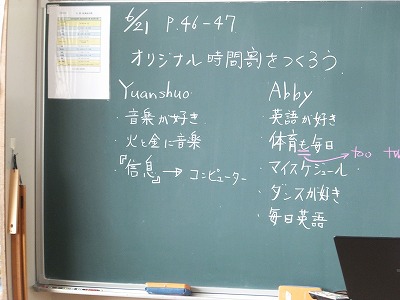 6/21 P.46-47
オリジナル時間割をつくろう
Yuanshuo
・音楽が好き
・火と金に音楽
・『信息』→コンピューター
Abby
・英語が好き
・体育も毎日 → too
・マイスケジュール
・ダンスが好き
・毎日英語